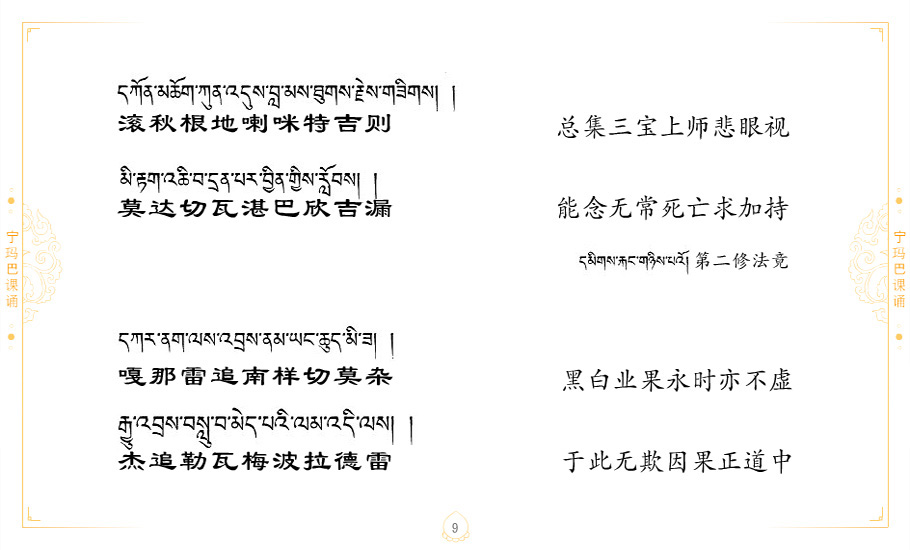 དཀོན་མཆོག་ཀུན་འདུས་བླ་མས་ཐུགས་རྗེས་གཟིགས། །
滚秋根地喇咪特吉则 总集三宝上师悲眼视
མི་རྟག་འཆི་བ་དྲན་པར་བྱིན་གྱིས་རློབས། །
莫达切瓦湛巴欣吉漏 能念无常死亡求加持
དམིགས་རྐང་གཉིས་པའོ། 第二修法竟
宁玛巴课诵
宁玛巴课诵
དཀར་ནག་ལས་འབྲས་ནམ་ཡང་ཆུད་མི་ཟ། །
嘎那雷追南样切莫杂 黑白业果永时亦不虚
རྒྱུ་འབྲས་བསླུ་བ་མེད་པའི་ལམ་འདི་ལས། །
杰追勒瓦梅波拉德雷 于此无欺因果正道中
9